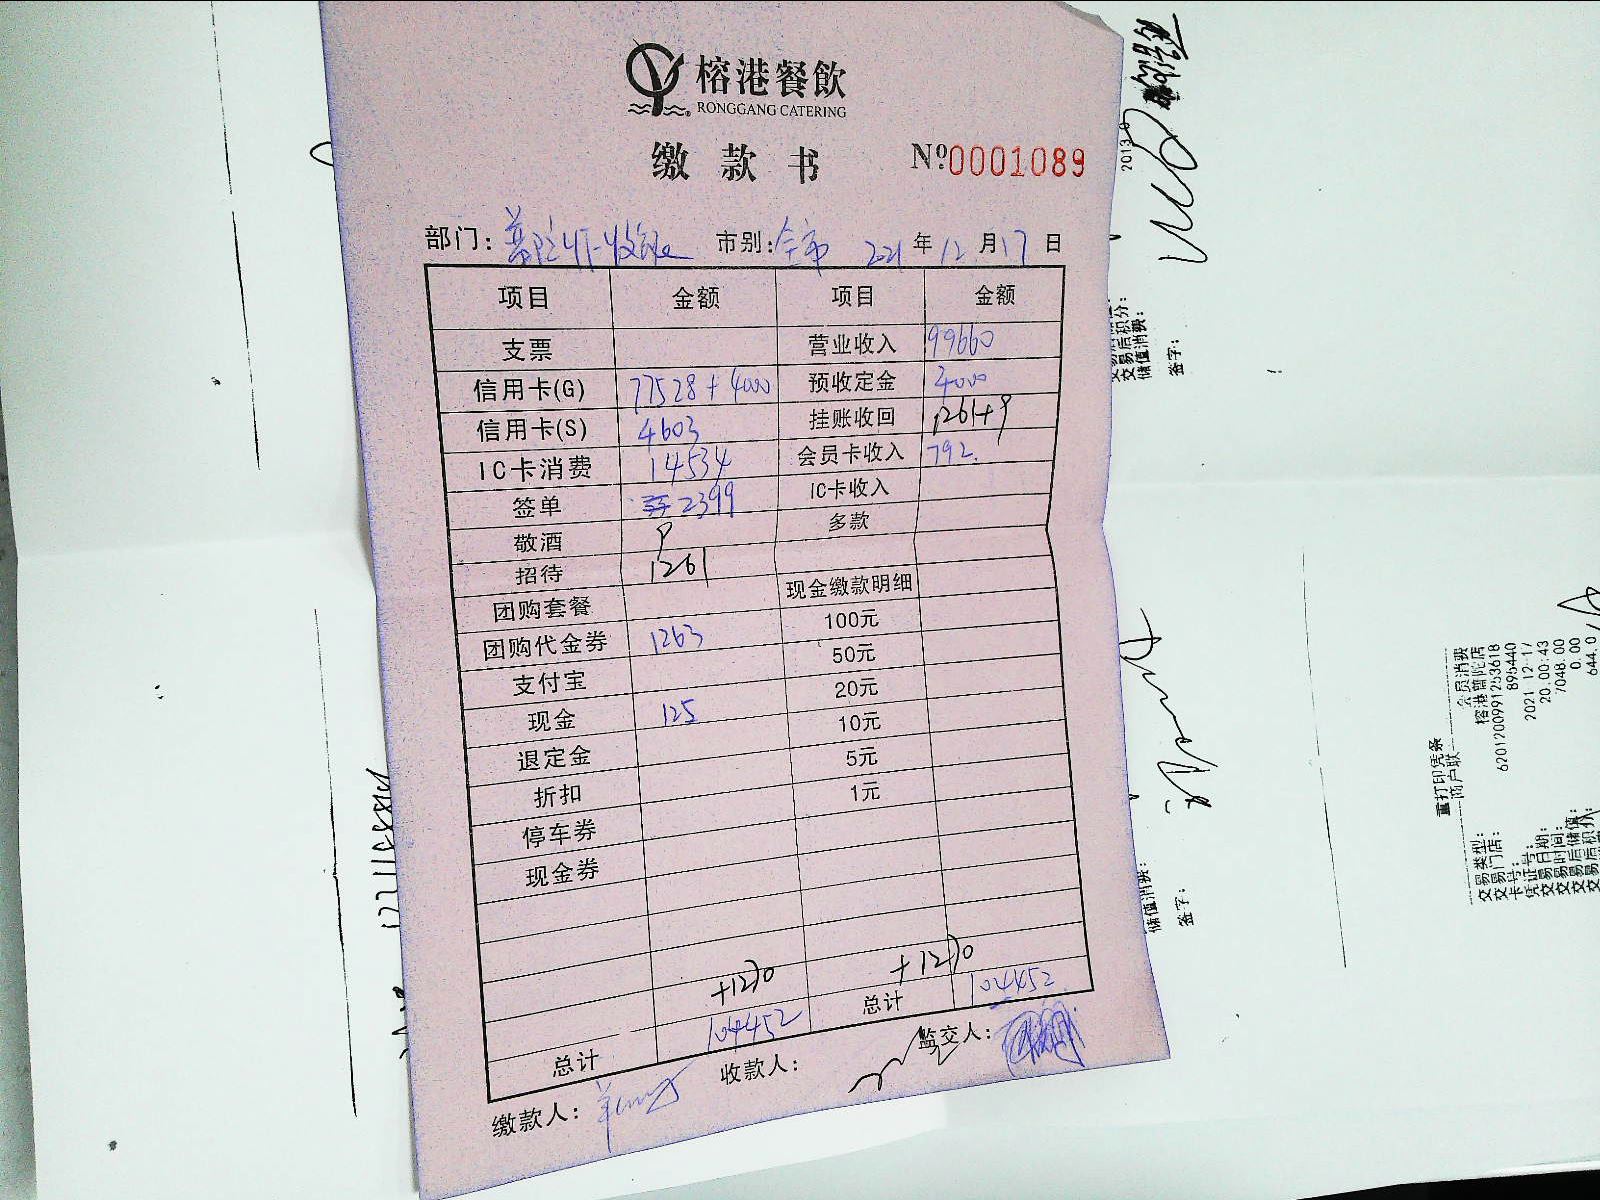 榕港餐飲
RONGGANG CATERING
缴款书 №0001089
部门: 普陀4F收银 市别: 全市 2021年12月17日
项目 金额 项目 金额
支票 营业收入 99660
信用卡(G) 77528+4000 预收定金 4000
信用卡(S) 4603 挂账收回 1261+9
IC卡消费 14534 会员卡收入 792
签单 2399 IC卡收入
敬酒 9 多款
招待 1261
团购套餐 现金缴款明细
团购代金券 1263 100元
支付宝 50元
现金 125 20元
退定金 10元
折扣 5元
停车券 1元
现金券
+1270 +1270
104452 总计 104452
总计
缴款人: 收款人: 监交人:
2013
交易后积分:
储值消费:
签字:
储值消费:
签字:
重打印凭条
商户联
交易类型: 会员消费
交易门店: 榕港普陀店
卡号: 6201200991253618
凭证号: 895440
交易日期: 2021-12-17
交易时间: 20:00:43
交易后储值: 7048.00
交易后积分: 0.00
644.0